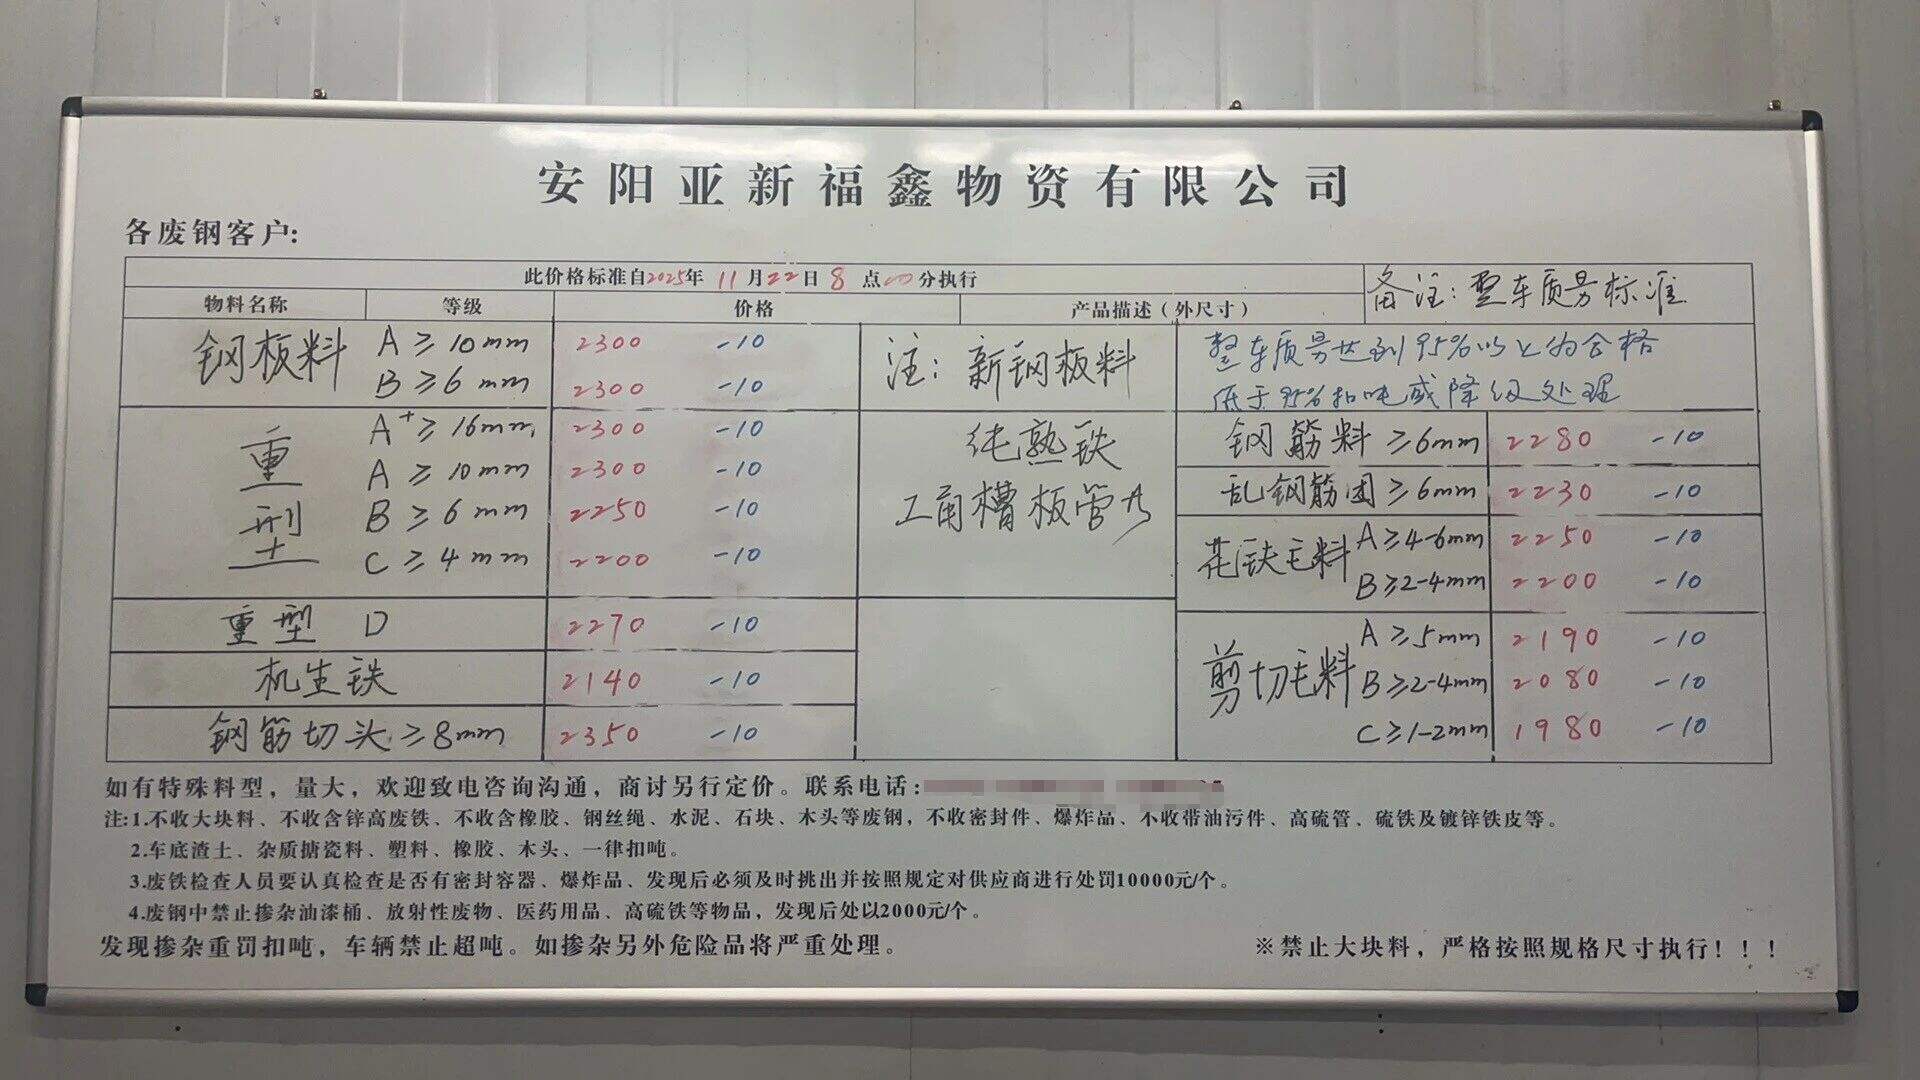 安阳亚新福鑫物资有限公司
各废钢客户:
此价格标准自2025年 11月22日8点00分执行
备注: 整车质量标准
物料名称 等级 价格 产品描述（外尺寸）
钢板料 A ≥ 10mm 2300 -10
B ≥ 6 mm 2300 -10
注: 新钢板料
整车质量达到95%以上为合格
低于95%扣吨或降级处理
重型 A⁺ ≥ 16mm 2300 -10
A ≥ 10mm 2300 -10
B ≥ 6 mm 2250 -10
C ≥ 4 mm 2200 -10
纯熟铁
工角槽板管
重型 D 2270 -10
机生铁 2140 -10
钢筋切头 ≥8mm 2350 -10
钢筋料 ≥6mm 2280 -10
乱钢筋团 ≥6mm 2230 -10
花铁毛料 A ≥4-6mm 2250 -10
B ≥2-4mm 2200 -10
剪切毛料 A ≥5mm 2190 -10
B ≥2-4mm 2080 -10
C ≥1-2mm 1980 -10
如有特殊料型，量大，欢迎致电咨询沟通，商讨另行定价。联系电话:
注:1.不收大块料、不收含锌高废铁、不收含橡胶、钢丝绳、水泥、石块、木头等废钢，不收密封件、爆炸品、不收带油污件、高硫管、硫铁及镀锌铁皮等。
2.车底渣土、杂质搪瓷料、塑料、橡胶、木头、一律扣吨。
3.废铁检查人员要认真检查是否有密封容器、爆炸品、发现后必须及时挑出并按照规定对供应商进行处罚10000元/个。
4.废钢中禁止掺杂油漆桶、放射性废物、医药用品、高硫铁等物品，发现后处以2000元/个。
发现掺杂重罚扣吨，车辆禁止超吨。如掺杂另外危险品将严重处理。
※禁止大块料，严格按照规格尺寸执行！！！